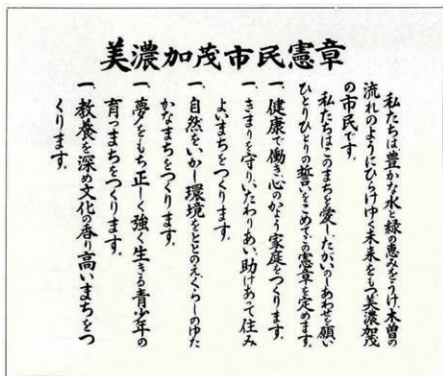 美濃加茂市民憲章
私たちは豊かな水と緑の恵みをうけ、木曽の
流れのようにひらけゆく未来をもつ美濃加茂
の市民です。
私たちはこのまちを愛し、たがいのしあわせを願い
ひとりひとりの誓いをこめてこの憲章を定めます。
一、健康で働き心のかよう家庭をつくります。
一、きまりを守り、いたわりあい、助けあって住み
よいまちをつくります。
一、自然をいかし環境をととのえくらしのゆた
かなまちをつくります。
一、夢をもち正しく強く生きる青少年の
育つまちをつくります。
一、教養を深め文化の香り高いまちをつ
くります。